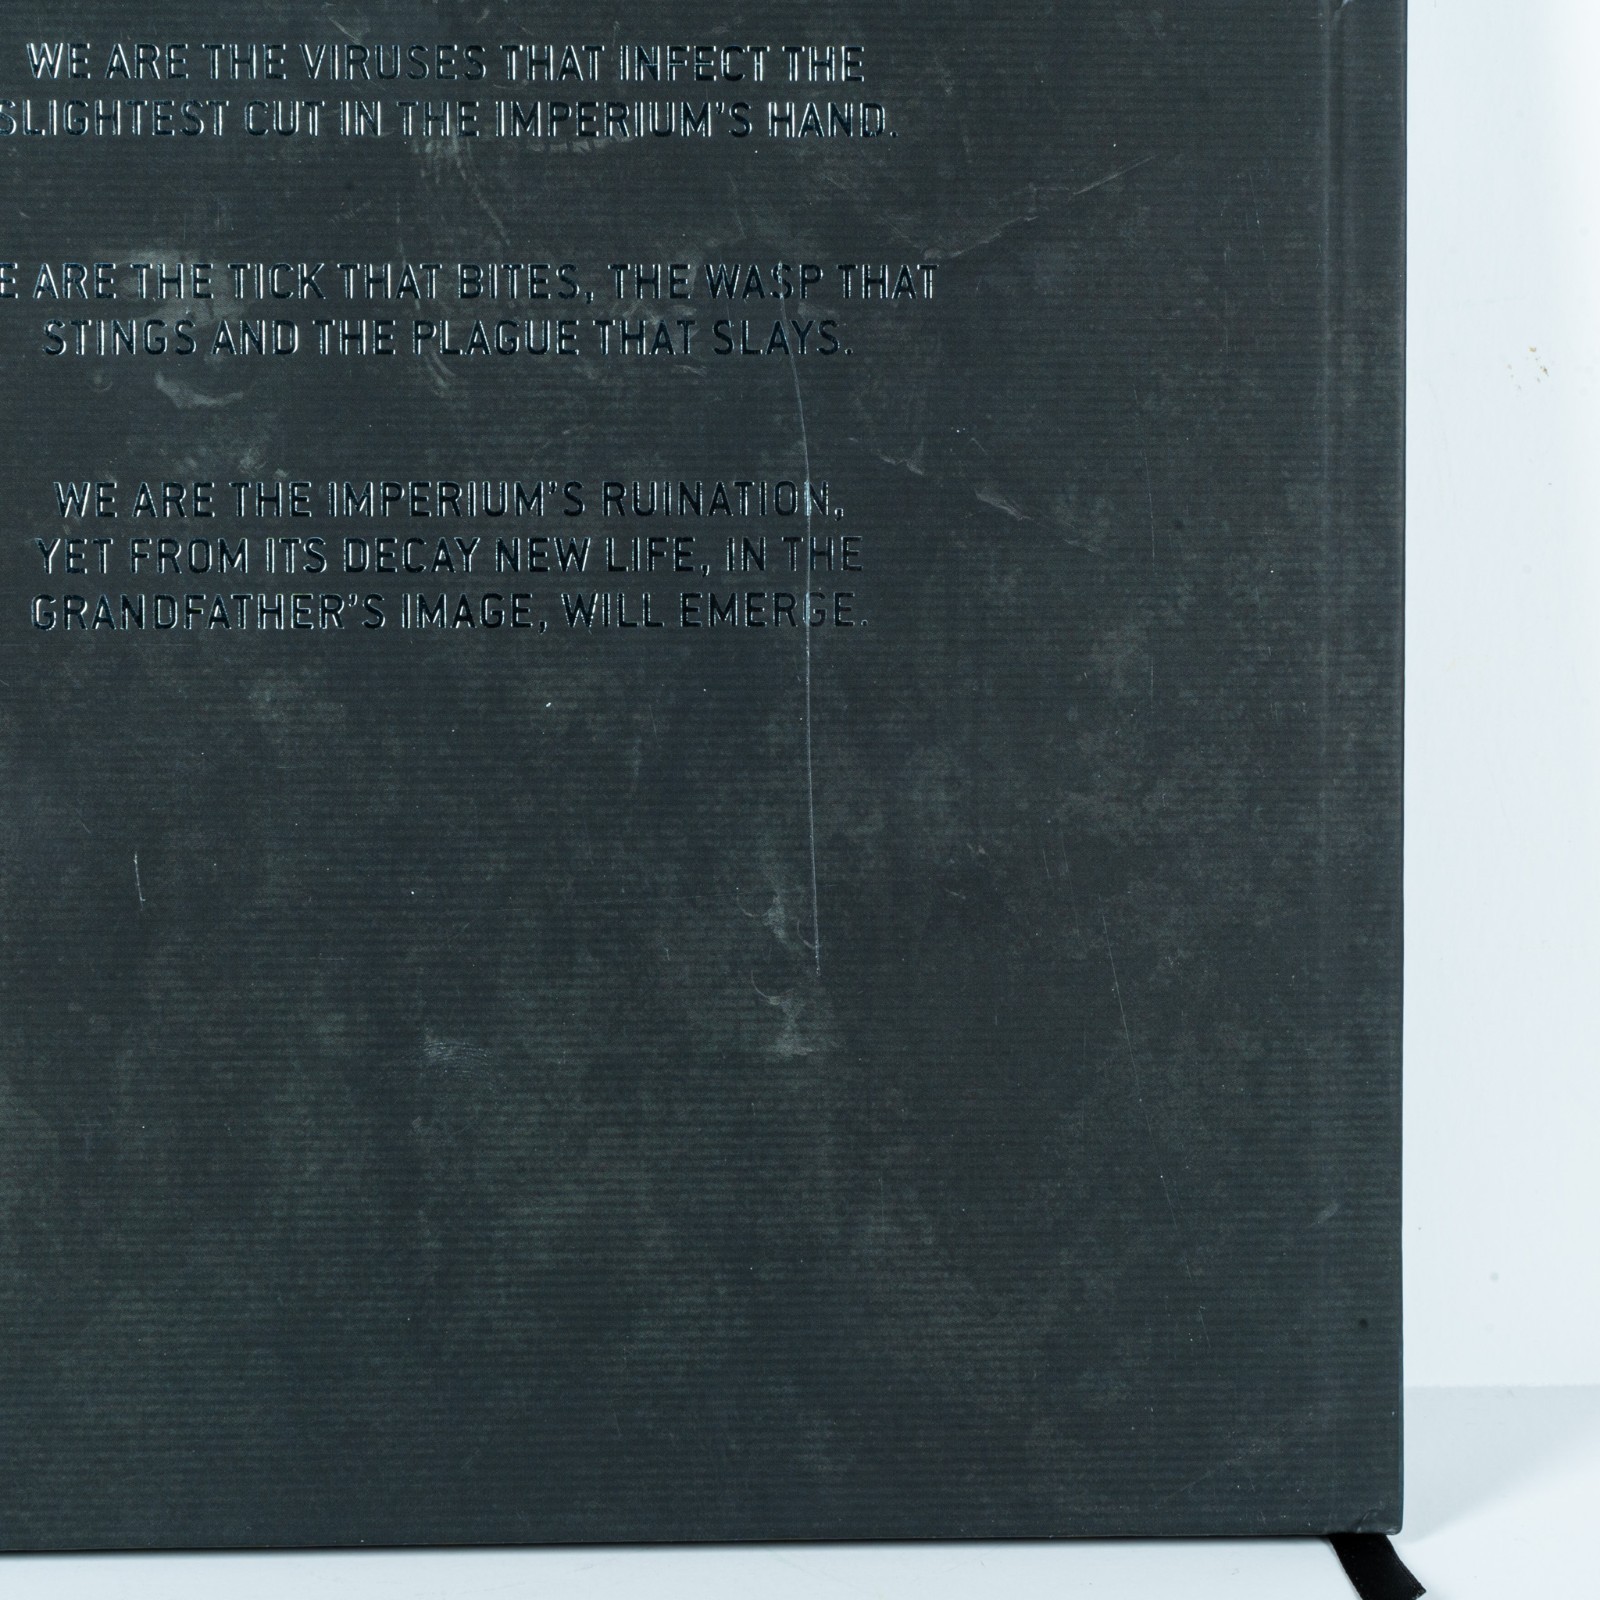 WE ARE THE VIRUSES THAT INFECT THE
SLIGHTEST CUT IN THE IMPERIUM'S HAND.
E ARE THE TICK THAT BITES, THE WASP THAT
STINGS AND THE PLAGUE THAT SLAYS.
WE ARE THE IMPERIUM'S RUINATION,
YET FROM ITS DECAY NEW LIFE, IN THE
GRANDFATHER'S IMAGE, WILL EMERGE.